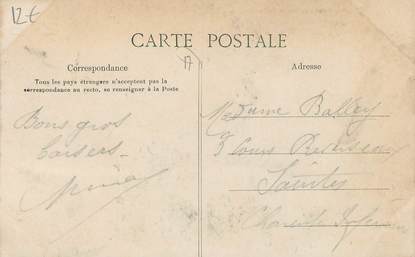 12€
CARTE POSTALE
Correspondance
17
Adresse
Tous les pays étrangers n'acceptent pas la
correspondance au recto, se renseigner à la Poste
Bons gros
baisers_
Madame Balley
3 Cours
Saintes
Charente Inférieure